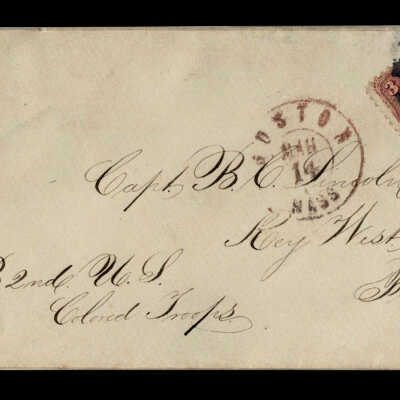 BOSTON
MAR
14
MASS
3
Capt. B. C. Lincoln
Key West
2nd U. S.
Colored Troops